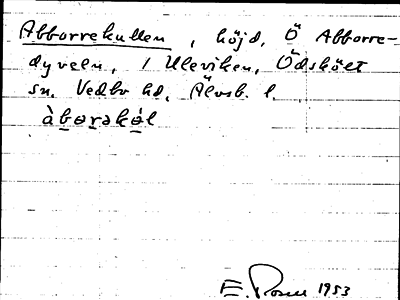 Abborrekullen, höjd, Ö Abborre-
dyveln, i Uleviken, Ödskölt
sn. Vedbo hd, Älvsb. l.
àbɵrəkɵ́l
E. 1953